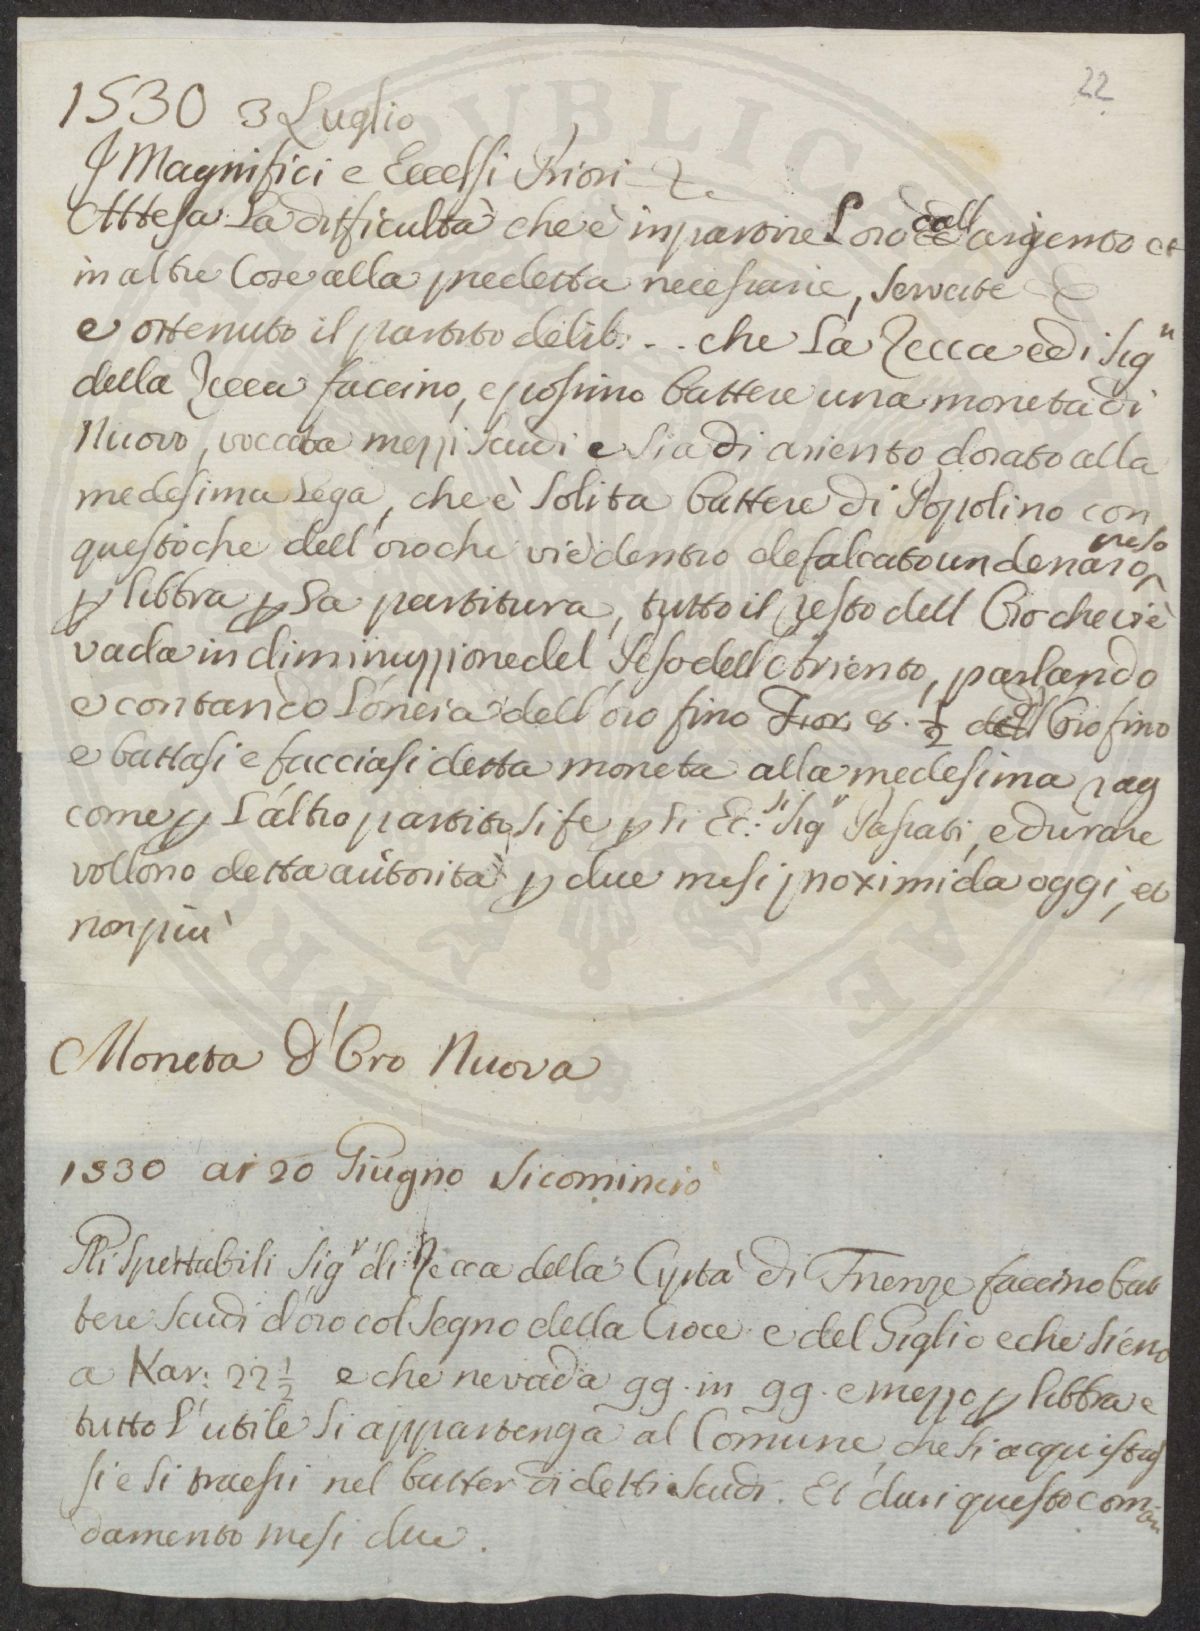 22
1530 3 Luglio
I Magnifici e Eccelsi Priori &c.
Attesa La difficultà che è in partire L'oro dall'argento et
in altre Cose alla predetta necessarie, servate &c
e ottenuto il partito delib: .. che La Zecca e di Sig.ri
della Zecca faccino, e possino battere una moneta di
Nuovo, voccata mezzi scudi e sia di ariento dorato alla
medesima Lega, che è solita battere di Popolino con
questo che dell'oro che viè dentro defalcato un denaro peso
p libbra p La partitura, tutto il resto dell Oro che viè
vada in diminuzzione del Peso dell'Ariento, parlando
e contando L'oncia dell'oro fino Fior. 8. 1/2 dell'Oro fino
e battasi e facciasi detta moneta alla medesima rag
come p L'altro partito si fe p li Ec:si Sig.ri Passati, e durare
vollono detta autorità p due mesi proximi da oggi, et
non più
Moneta d'Oro Nuova
1530 ai 20 Giugno si cominciò
Gli Spettabili Sig.ri di Zecca della Cyttà di Firenze faccino bat
tere scudi d'oro col segno della Croce e del Giglio e che sieno
a Kar: 22 1/2 e che ne vada 99. in 99. e mezzo p libbra e
tutto l'utile si appartenga al Comune, che si acquistas
si e si traessi nel batter di detti scudi. Et duri questo coman
damento mesi due.
PVBLIC